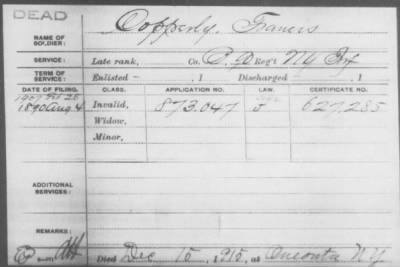 DEAD
NAME OF SOLDIER: Copperly, Francis
SERVICE: Late rank, Co. Reg't NY Inf
TERM OF SERVICE: Enlisted 1 Discharged 1
DATE OF FILING. CLASS. APPLICATION NO. LAW. CERTIFICATE NO.
1890 Aug 4 Invalid, 873.047 J 627.285
Widow,
Minor,
ADDITIONAL SERVICES:
REMARKS:
Died Dec 15, 1915, at Oneonta N.Y.